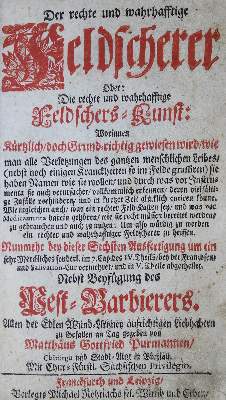 Der rechte und wahrhafftige
Feldscherer
Oder:
Die rechte und wahrhafftige
Feldschers-Kunst:
Worinnen
Kürtzlich/ doch Grund-richtig gewiesen wird/ wie
man alle Verletzungen des gantzen menschlichen Leibes/
(nebst noch einigen Kranckheiten so im Felde grassiren) sie
haben Namen wie sie wollen/ und durch was vor Instru-
menta sie auch verursachet/ vollkömmlich erkennen/
Zufälle verhindern, und in kurtzer Zeit glücklich curiren könne.
Wie ingleichen auch/ was ein rechter Feld-Kasten sey/ und was vor
Medicamenta darein gehören/ wie sie recht müssen bereitet werden/
zu gebrauchen und auch zu nutzen.
ein rechter und wahrhafftiger Feldscherer zu heissen.
Nunmehr bey dieser Sechsten Ausfertigung um ein
Nebst Beyfügung des
Pest-Barbierers,
Allen der Edlen Wund-Artzney aufrichtigen Liebhabern
zu Gefallen an Tag gegeben von
Matthäus Gottfried Purmannen/
Chirurgo und Stadt-Artzt in Breßlau.
Mit Churf. Fürstl. Sächsischen Privilegio.
Franckfurth und Leipzig/
Verlegts Michael Rohrlachs sel. Wittib und Erben/